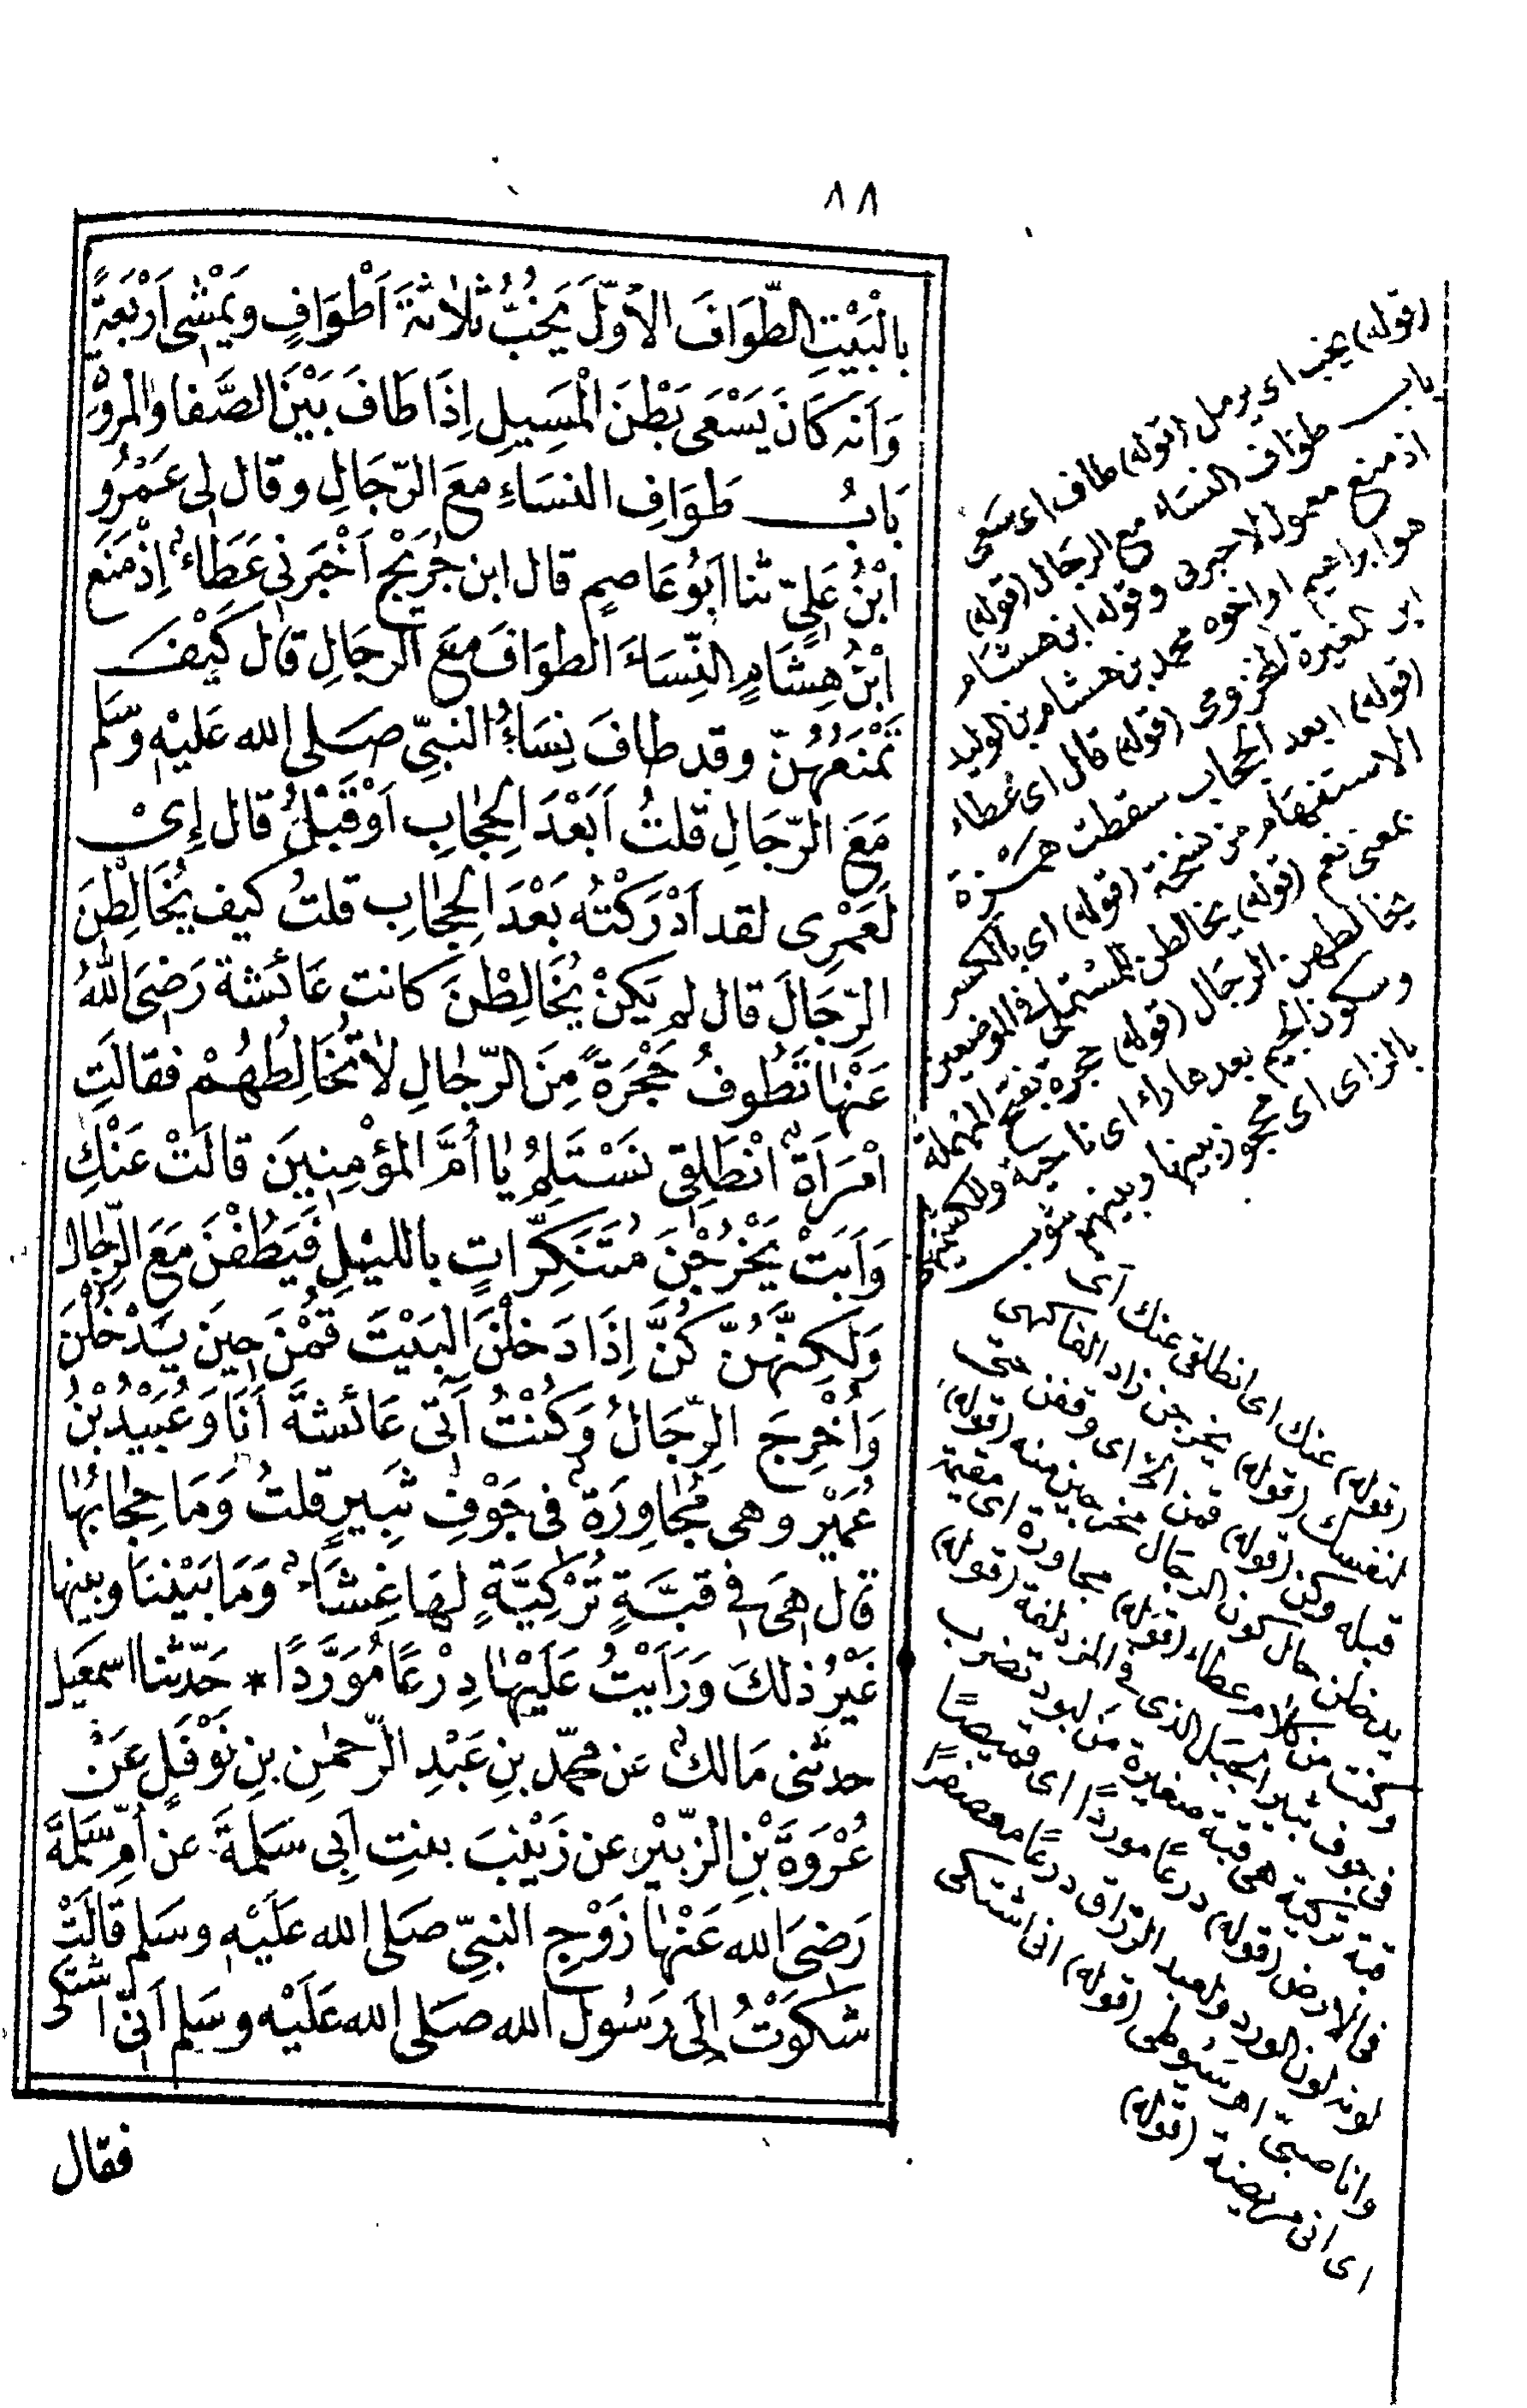 ٨٨
بِالْبَيْتِ الطَّوَافَ الأَوَّلَ يَخُبُّ ثَلاثَةَ اَطْوَافٍ وَيَمْشِى اَرْبَعَةً
وَاَنَّهُ كَانَ يَسْعَى بَطْنَ الْمَسِيلِ اِذَا طَافَ بَيْنَ الصَّفا وَالْمَرْوَةِ
بَابُ طَوَافِ النسَاءِ مَعَ الرّجَالِ وقال لى عَمْرُو
ابْنُ عَلِىّ ثنا اَبُو عَاصِمٍ قال ابن جُرَيْجٍ اَخْبَرَنِى عَطَاءٌ اِذْ مَنَعَ
ابْنُ هِشَامٍ النِّسَاءَ الطوَافَ مَعَ الرّجَالِ قَالَ كَيْفَ
تَمْنَعُهُنّ وقد طافَ نِسَاءُ النبىِّ صَلى الله عَلَيْهِ وَسَّلم
مَعَ الرّجَالِ قلتُ اَبَعْدَ الحِجَابِ اَوْ قَبْلُ قال إِىْ
لَعَمْرِى لقد اَدْرَكْتُه بَعْدَ الحِجَابِ قلتُ كيف يُخَالِطْنَ
الرّجَالَ قال لم يَكنْ يُخَالِطْنَ كانت عَائشة رَضِىَ اللهُ
عَنْهَا تَطُوفُ حَجْرَةً مِنَ الرّجَالِ لاتُخَالِطُهُمْ فقالَتِ
امْرَاَةٌ انْطَلِقِى نَسْتَلِمُ يَا اُمَّ المؤْمِنِينَ قالَتْ عَنْكِ
وَاَبَتْ يَخْرُجْنَ مُتَنَكِّرَاتٍ بالليْلِ فَيَطُفْنَ مَعَ الرِّجَالِ
وَلَكِنَّهُنَّ كُنَّ اِذَا دَخلْنَ البَيْتَ قُمْنَ حِينَ يَدْخُلْنَ
وَاُخْرِجَ الرِّجَالُ وَكُنْتُ آتِى عَائشةَ اَنَا وَعُبَيْدُ بْنُ
عُمَيْرٍ وهى مُجَاوِرَةٌ فى جَوْفِ ثَبِيرٍ قلتُ وَمَا حِجَابُهَا
قال هِىَ فى قبَّةٍ تُرْكِيَّةٍ لهَا غِشَاءٌ وَمَا بَيْننَا وبينها
غَيْرُ ذلكَ وَرَاَيْتُ عَلَيْهَا دِرْعًا مُوَرَّدًا * حَدّثنا اسمعيل
حدثنى مَالكٌ عن مُحمّد بنِ عَبْدِ الرّحمٰنِ بنِ نَوْفَلٍ عَنْ
عُرْوَةَ بْنِ الزّبيْرِ عن زَيْنبَ بنتِ اَبِى سَلمةَ عن اُمِّ سَلمَةَ
رَضِىَ الله عَنْهَا زَوْجِ النبىِّ صَلى الله عَلَيْهِ وسَلم قَالَتْ
شَكَوْتُ اِلَى رَسُولِ الله صَلى الله عَلَيْه وسَلم اَنّى اشْتكى
فقال
(قوله) يخب اى يرمل (قوله) طاف اى سعى
باب طواف النساء مع الرجال (قوله)
اذ منع معمول لاخبرنى وقوله ابن هشام
هو ابراهيم او اخوه محمد بن هشام بن الوليد
ابن المغيرة المخزومى (قوله) قال اى عطاء
(قوله) ابعد الحجاب سقطت همزة
الاستفهام من نسخة (قوله) اى بالكسر
بمعنى نعم (قوله) يخالطن للمستملى فى الموضعين
يخالطهن الرجال (قوله) حجرة بفتح المهملة
وسكون الجيم بعدها راء اى ناحية وللكشميهنى
بالزاى اى محجوز بينها وبينهم بثوب
(قوله) عنك اى انطلقى عنك اى
لنفسك (قوله) يخرجن زاد الفاكهى
قبله وكن (قوله) قمن الخ اى وقفن حتى
يدخلن حال كون الرجال مخرجين منه (قوله)
وكنت من كلام عطاء (قوله) مجاورة اى مقيمة
فى جوف ثبير الجبل الذى فى المزدلفة (قوله)
قبة تركية هى قبة صغيرة من لبود تضرب
فى الارض (قوله) درعًا موردًا اى قميصًا
لونه لون الورد ولعبد الرزاق درعًا معصفرًا
وانا صبىّ اهـ سيوطى (قوله) انى اشتكى
اى انى مريضة (قوله)